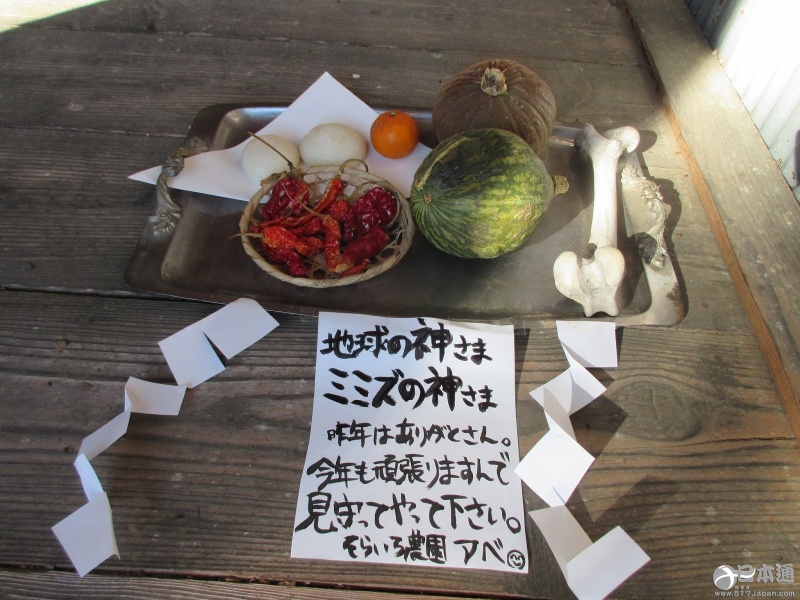 地球の神さま
ミミズの神さま
昨年はありがとさん。
今年も頑張りますんで
見守ってやって下さい。
そらいろ農園 アベ
日本通
www.517japan.com